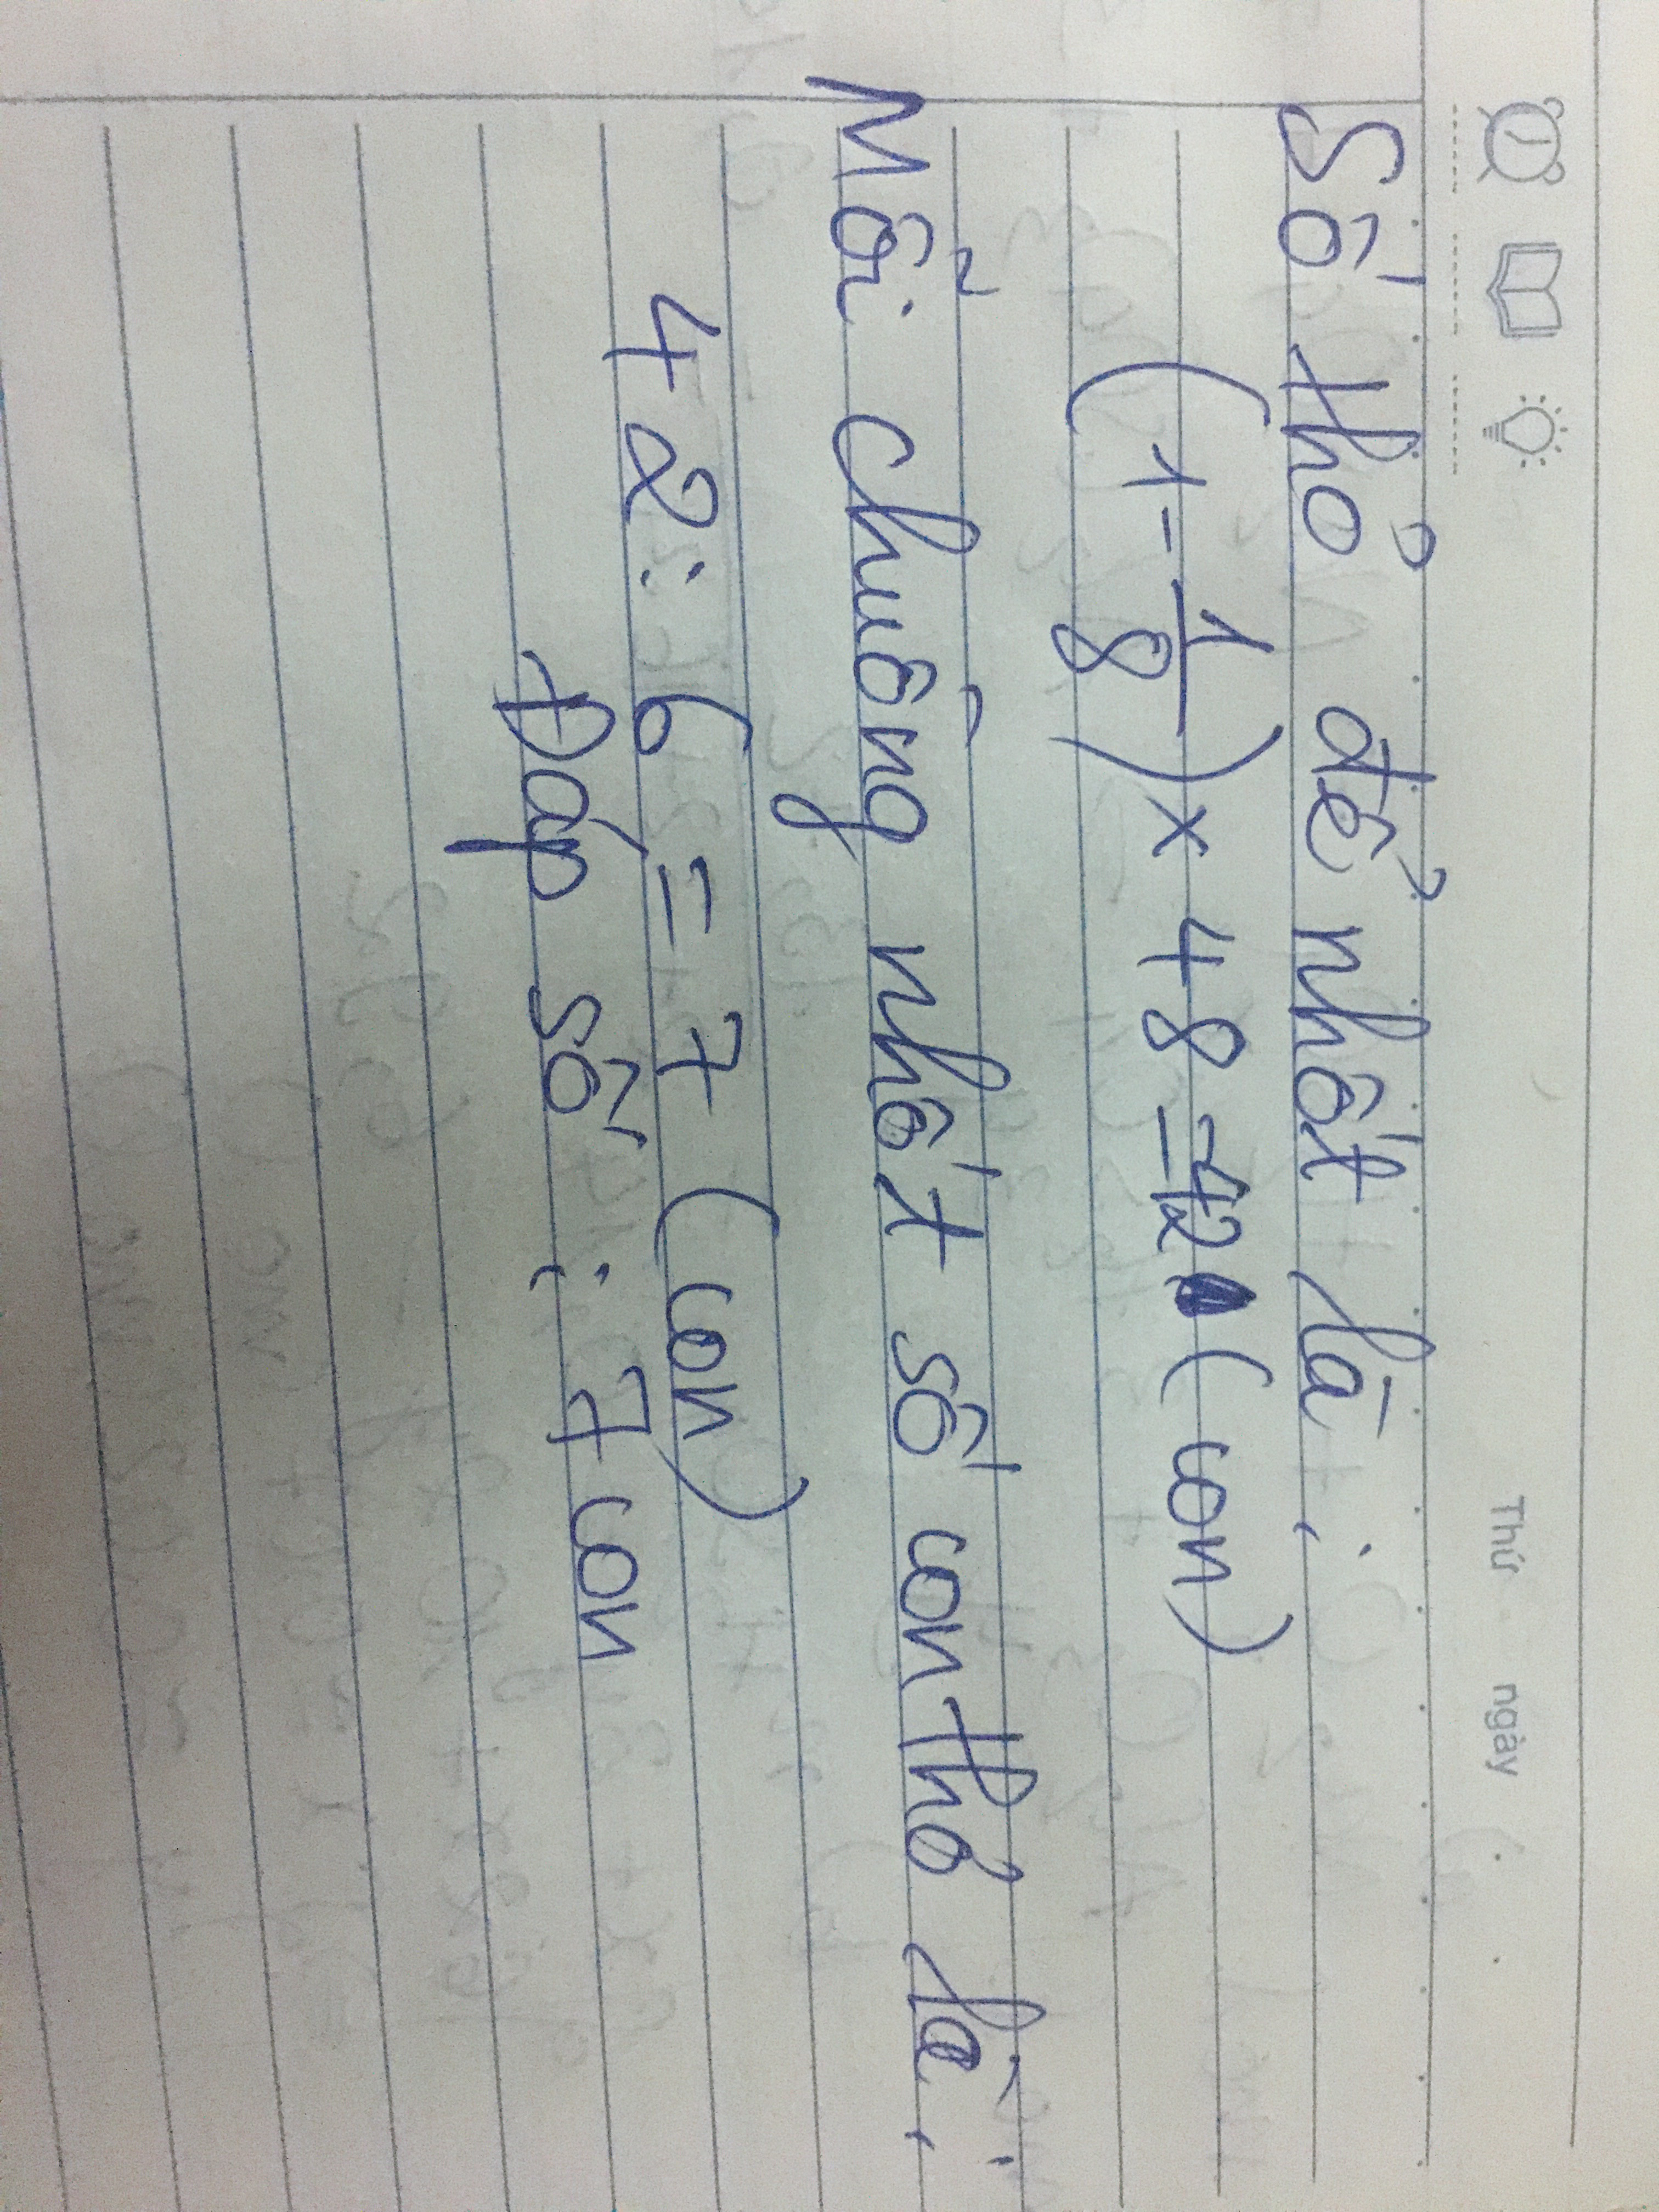 Thứ ngày
Số thỏ để nhốt là:
(1 - 1/8) × 48 = 42 (con)
Mỗi chuồng nhốt số con thỏ là:
42 : 6 = 7 (con)
Đáp số : 7 con